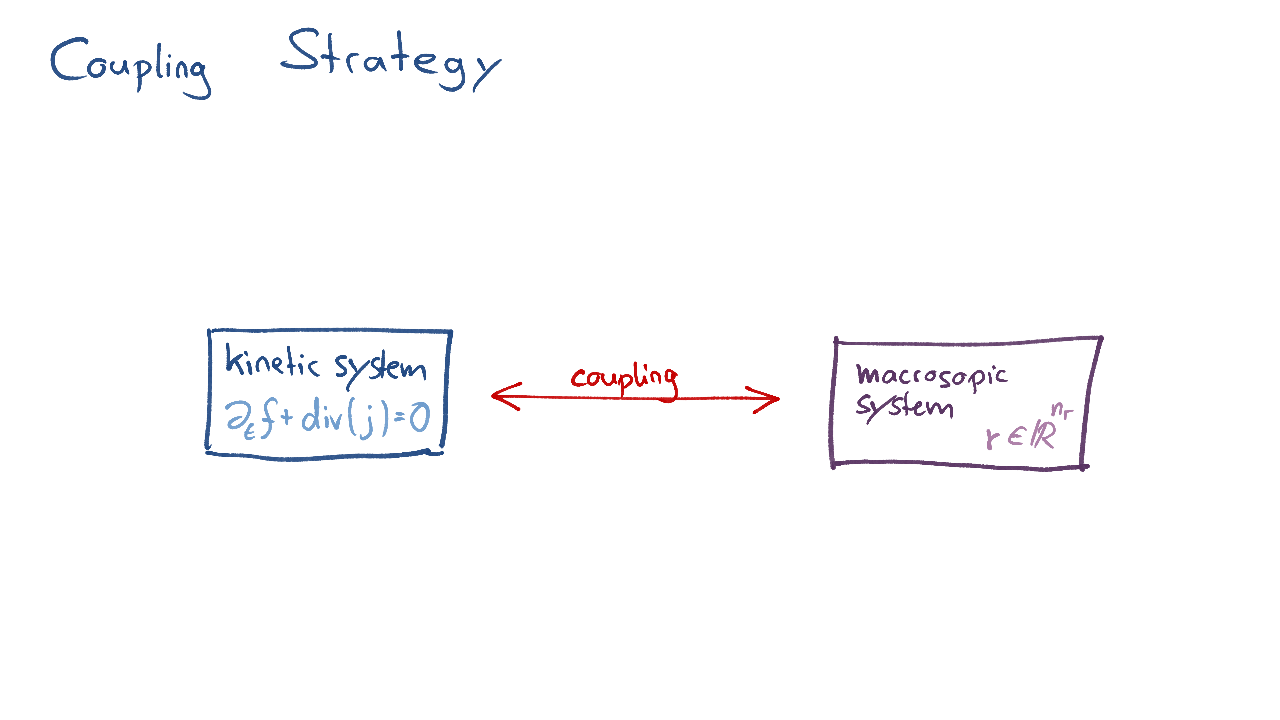 Coupling Strategy
kinetic system
∂ₜf + div(j) = 0
coupling
macrosopic
system
r ∈ ℝ^{n_r}